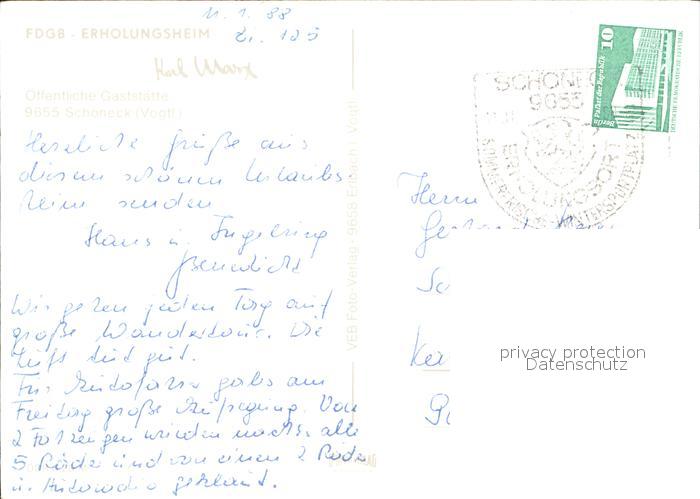 11.1.88
FDGB - ERHOLUNGSHEIM
Zi. 125
Karl Marx
Öffentliche Gaststätte
9655 Schöneck (Vogtl.)
Herzliche Grüße aus
diesem schönen Urlaubs
heim senden
Hans u. Ingeborg
Benedickt
Wir gehen jeden Tag auf
große Wandertour. Die
Luft tut gut.
Für Autofahrer gab's am
Freitag große Aufregung. Von
2 Fahrzeugen wurden nachts alle
5 Räder und von einem 2 Räder
u. Autoradio geklaut.
VEB Foto-Verlag · 9658 Erlbach
SCHÖNECK
9655
ERHOLUNGSORT
10
Palast der Republik
Berlin
DEUTSCHE DEMOKRATISCHE REPUBLIK
Herrn
privacy protection
Datenschutz